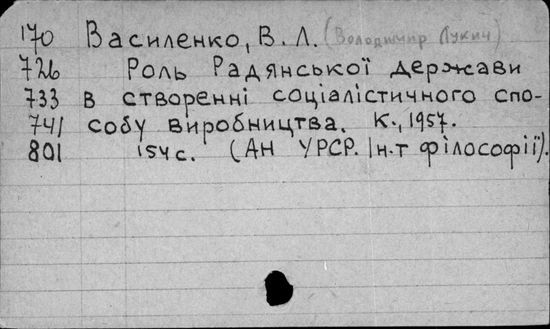 170 Василенко, В. Л. (Володимир Лукич)
726 Роль Радянської держави
733 в створенні соціалістичного спо-
741 собу виробництва. К., 1957.
801 154 с. (АН УРСР. Ін-т філософії).